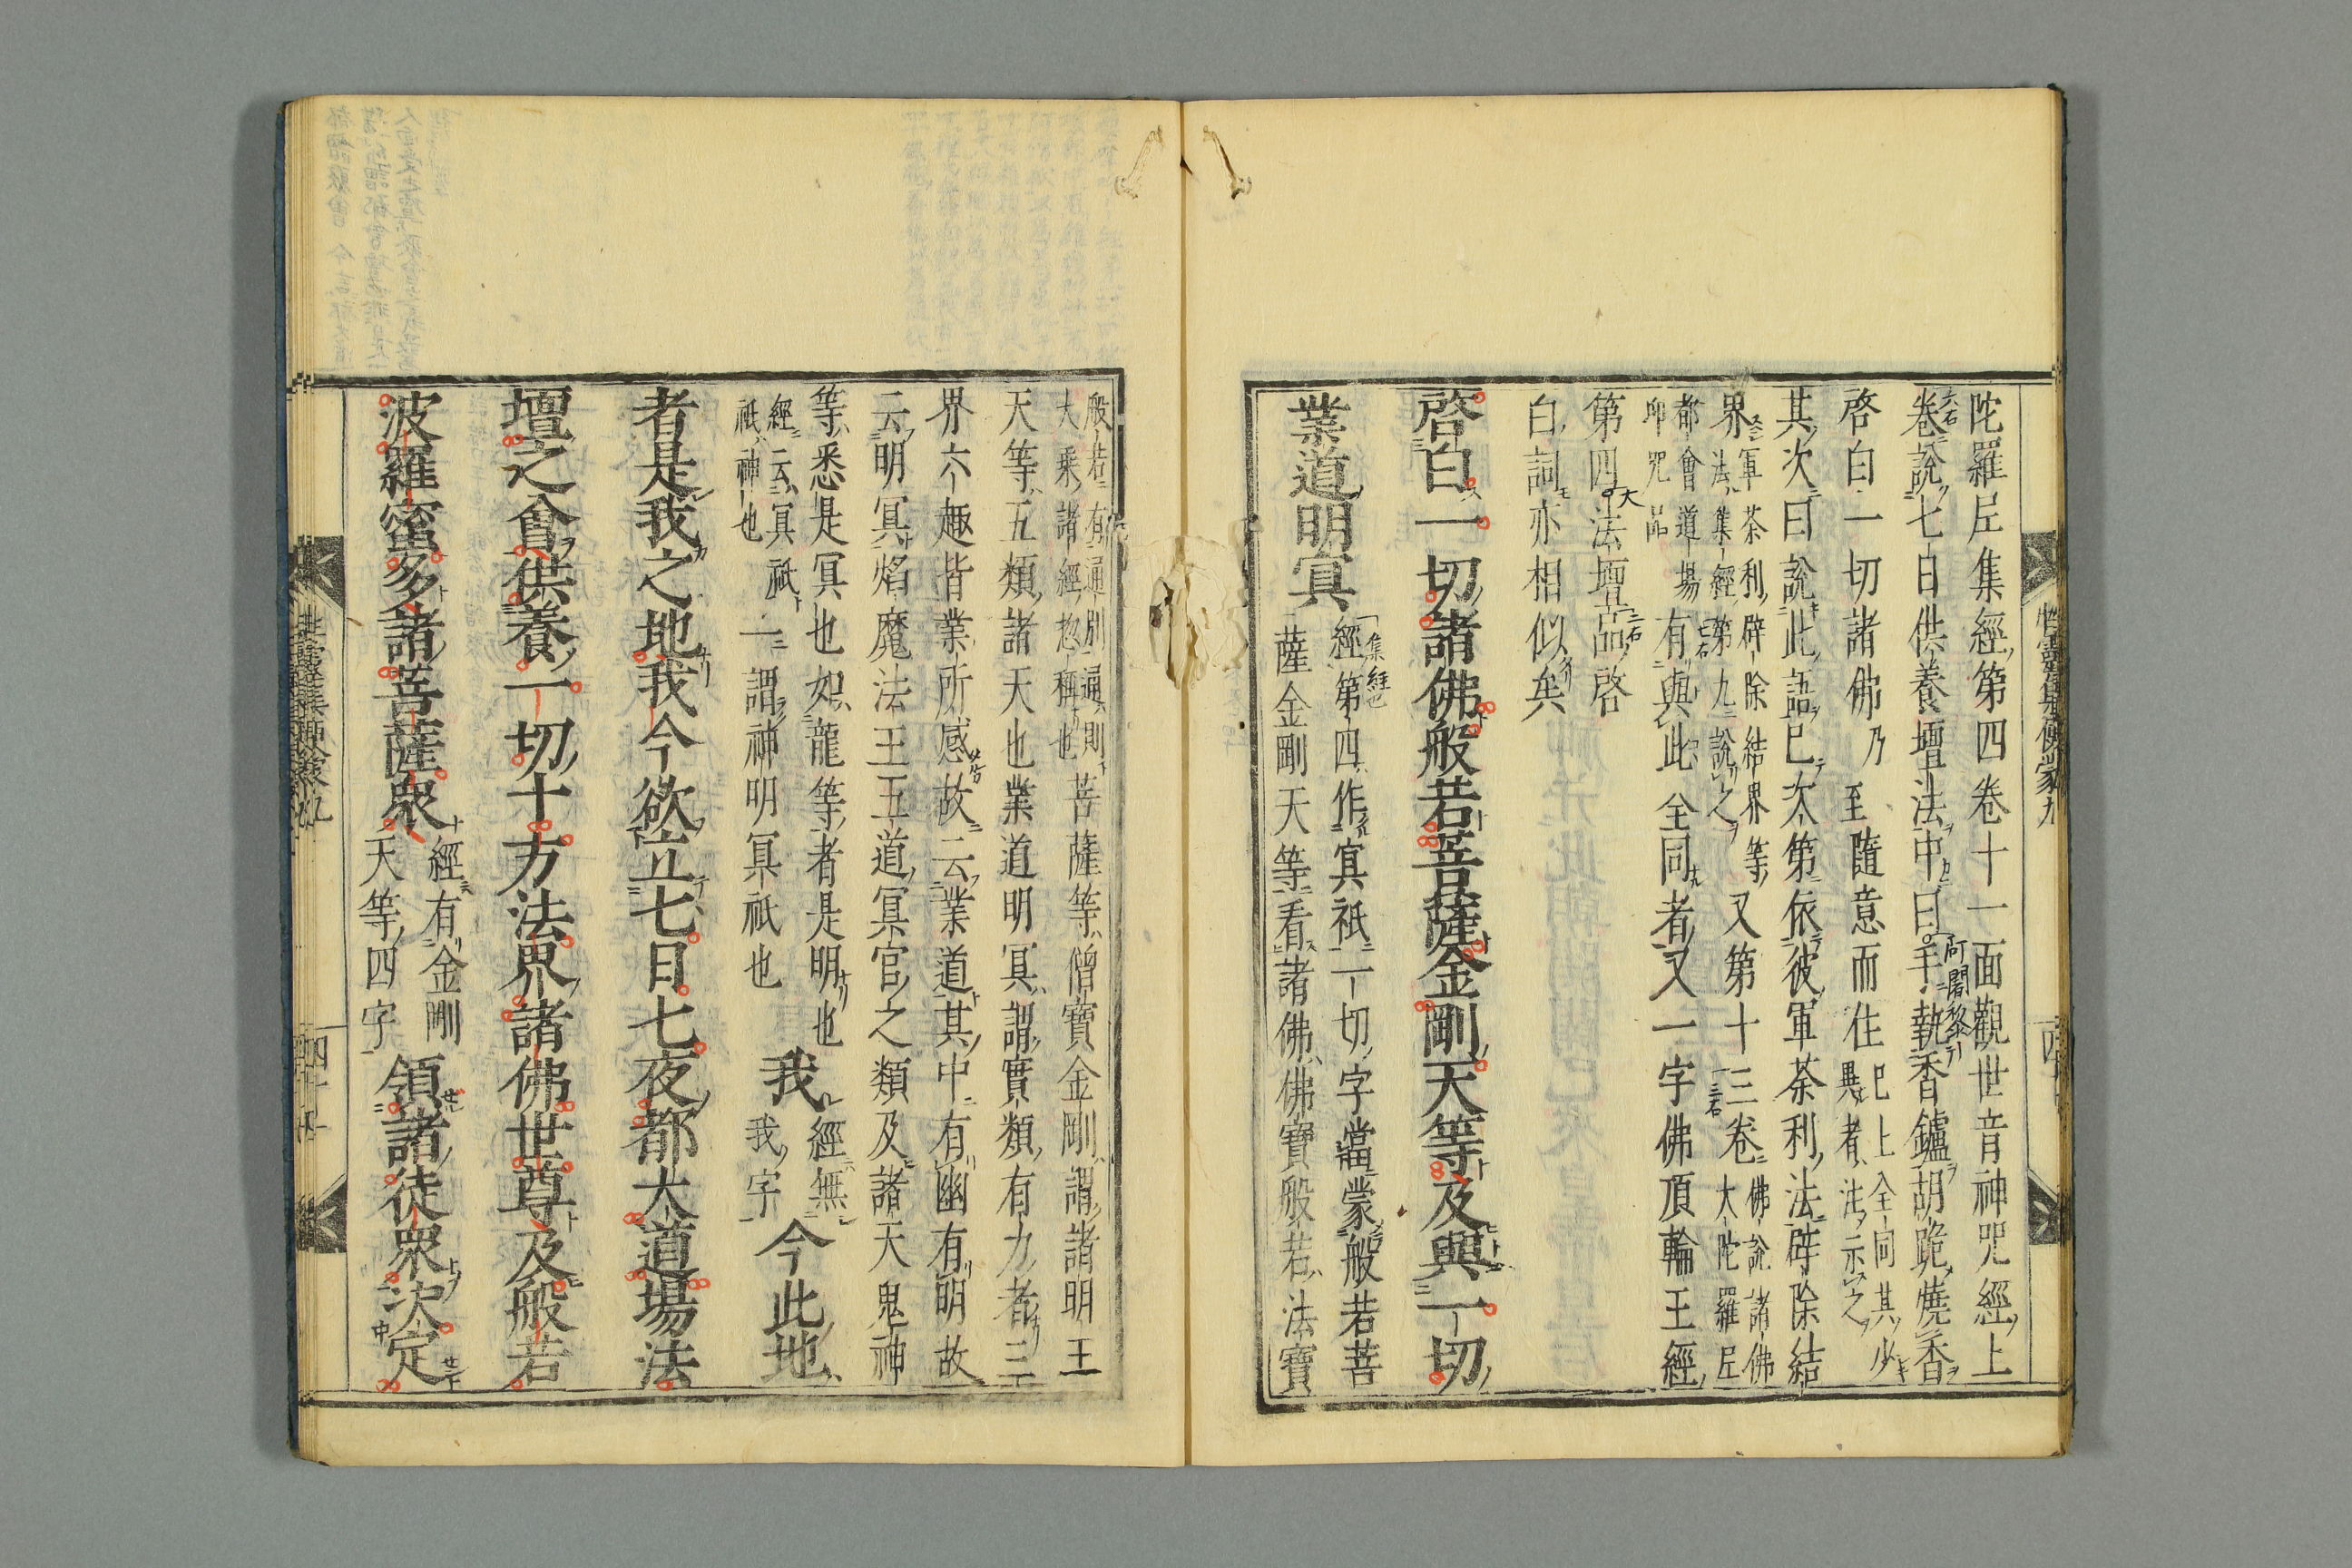 陀羅尼集經第四卷十一面觀世音神咒經上
卷說七日供養壇法中曰手執香鑪胡跪燒香
阿闍黎
啓白一切諸佛乃至隨意而住已上全同其少異者注示之
其次曰說此語已次第依彼軍荼利法辟除結
界軍荼利辟除結界等法集經第九說之又第十三卷佛說諸佛大陀羅尼
都會道場印咒品有與此全同者又一字佛頂輪王經
第四大法壇品啓
白詞亦相似矣
啓白一切諸佛般若菩薩金剛天等及與一切
業道明冥
集經也
經第四作冥祇一切字當蒙般若菩
薩金剛天等看諸佛佛寶般若法寶
般若有通別通則大乘諸經惣稱也菩薩等僧寶金剛謂諸明王
天等五類諸天也業道明冥謂實類有力者三
界六趣皆業所感故云業道其中有幽有明故
云明冥焰魔法王五道冥官之類及諸天鬼神
等悉是冥也如龍等者是明也
經云冥祇祇神也一謂神明冥祇也
我經無我字今此地
者是我之地我今欲立七日七夜都大道場法
壇之會供養一切十方法界諸佛世尊及般若
波羅蜜多諸菩薩眾經有金剛天等四字領諸徒眾決定